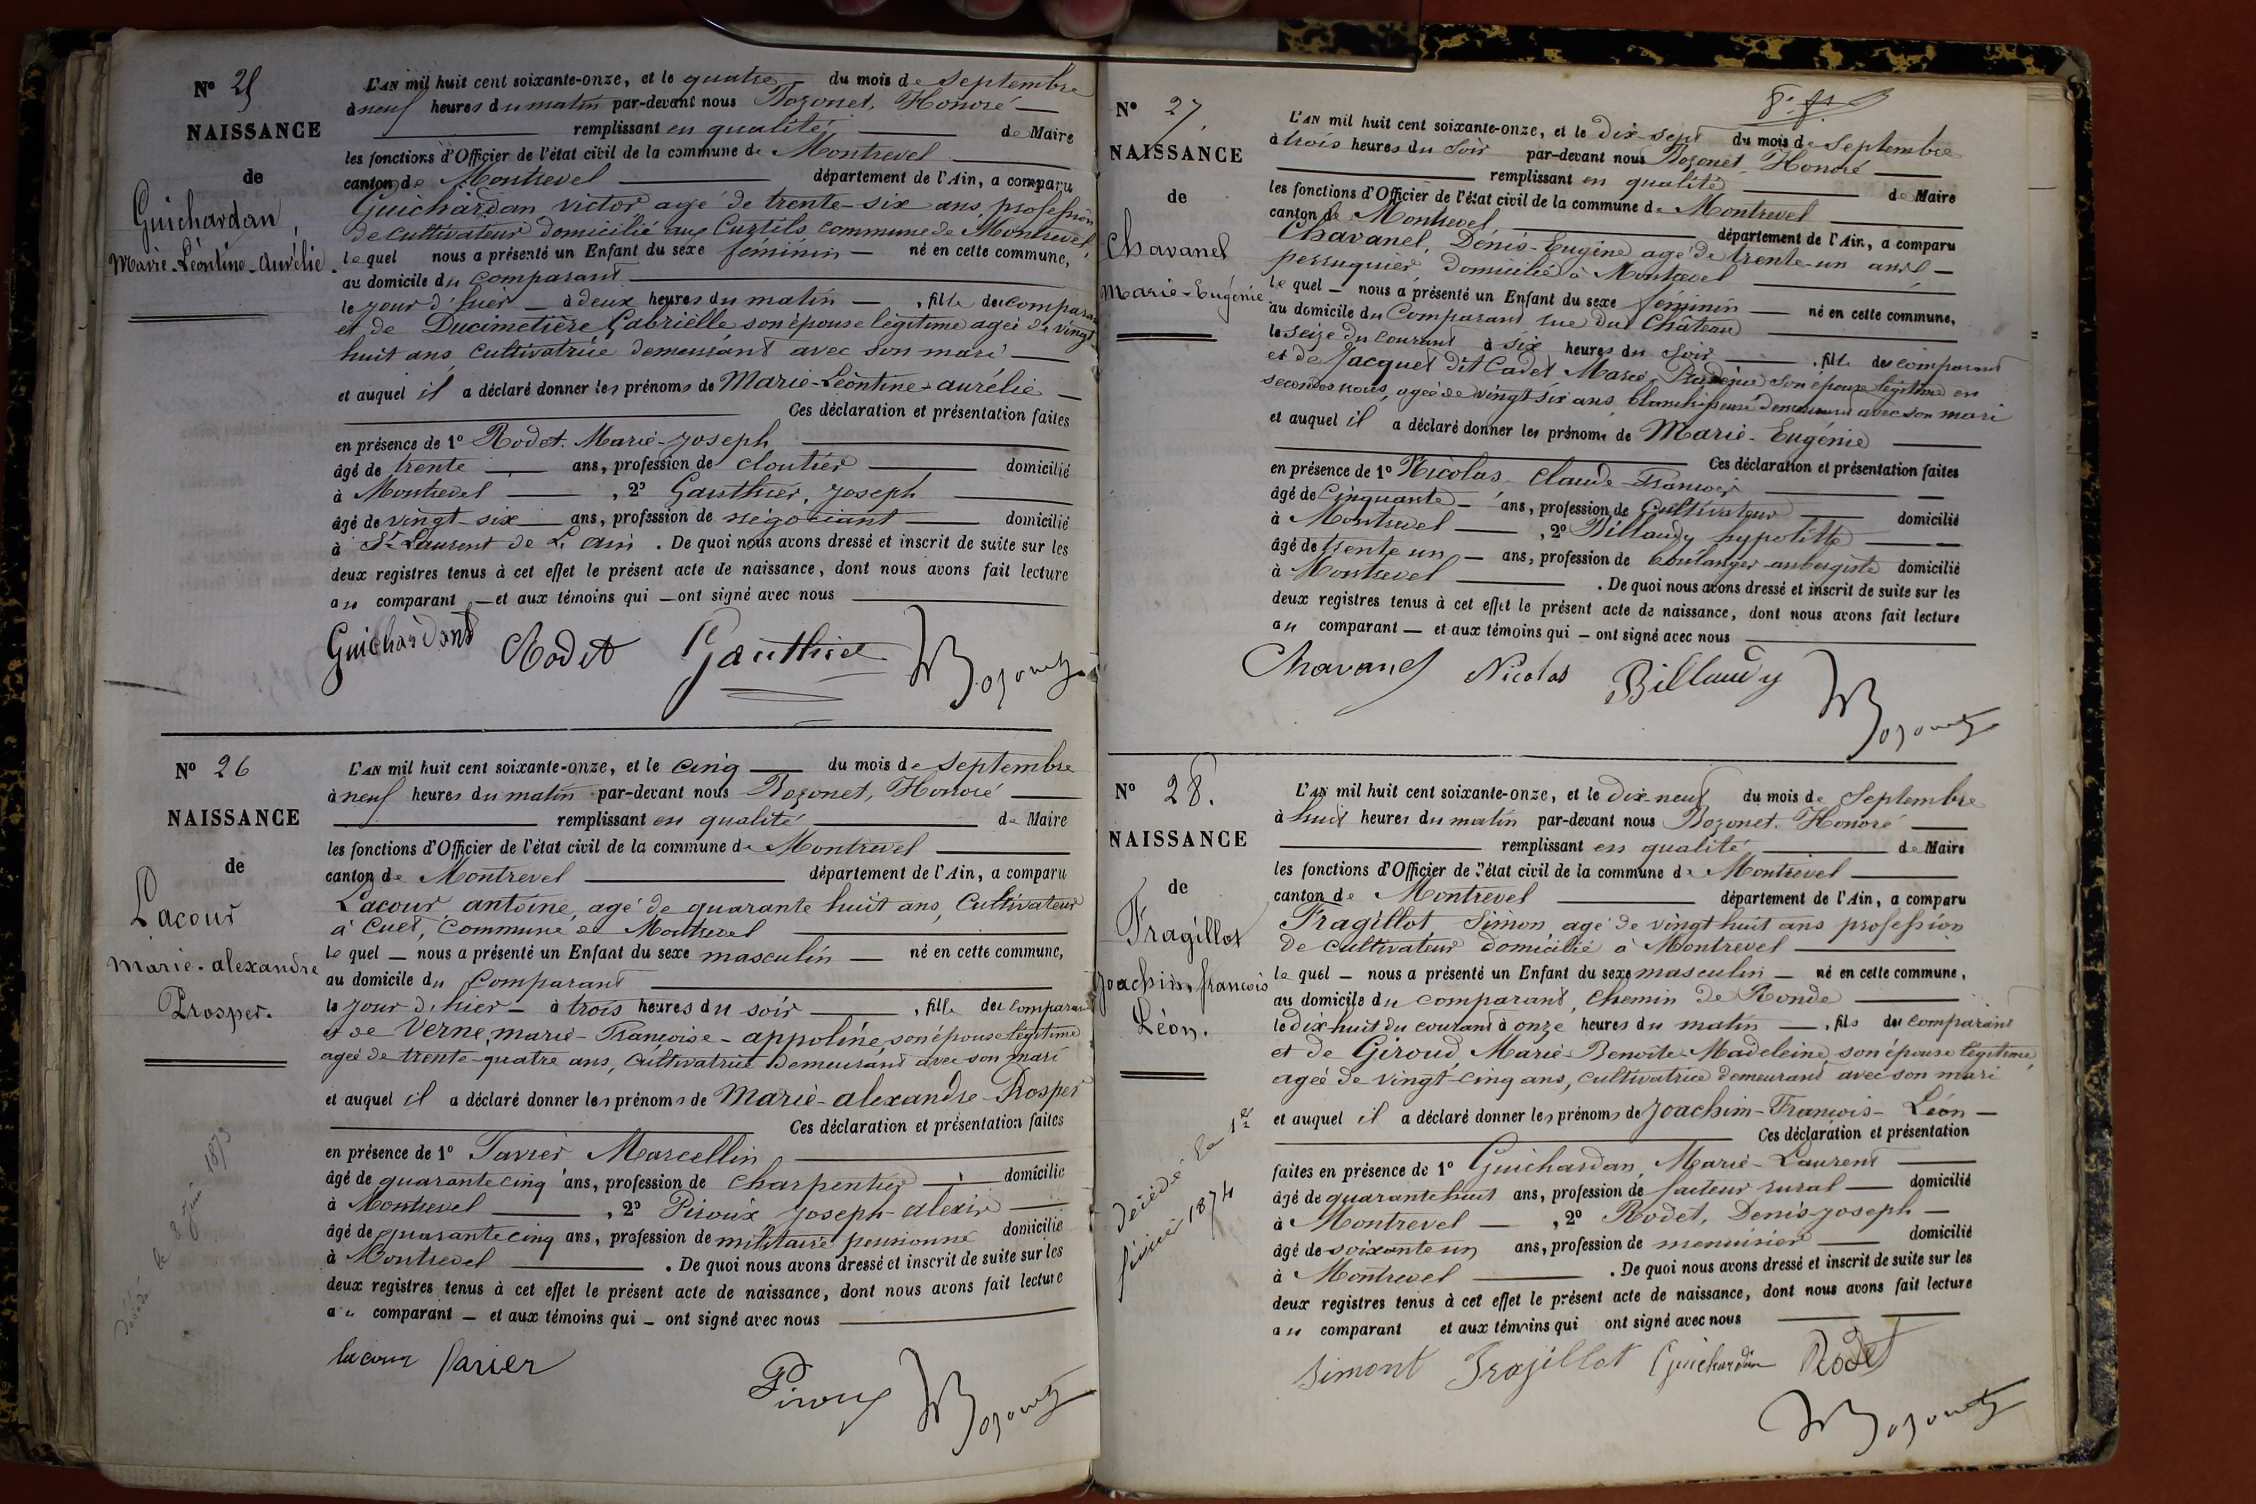 N° 25
NAISSANCE
de
Guichardan
Marie-Léontine-Aurélie.
L'AN mil huit cent soixante-onze, et le quatre du mois de Septembre
à neuf heures du matin par-devant nous Bozonet, Honoré
remplissant en qualité de Maire
les fonctions d'Officier de l'état civil de la commune de Montrevel
canton de Montrevel département de l'Ain, a comparu
Guichardan victor agé de trente-six ans, profession
de cultivateur domicilié aux Curtils commune de Montrevel,
lequel nous a présenté un Enfant du sexe féminin né en cette commune,
au domicile du comparant
le jour d'hier à deux heures du matin, fille du comparant
et de Ducimetière Gabrielle son épouse légitime agée de vingt
huit ans cultivatrice demeurant avec son mari
et auquel il a déclaré donner les prénoms de Marie-Léontine-aurélie
Ces déclaration et présentation faites
en présence de 1° Rodet. Marie-Joseph
âgé de trente ans, profession de cloutier domicilié
à Montrevel, 2° Gauthier, Joseph
âgé de vingt-six ans, profession de négociant domicilié
à St Laurent de L'ain. De quoi nous avons dressé et inscrit de suite sur les
deux registres tenus à cet effet le présent acte de naissance, dont nous avons fait lecture
au comparant et aux témoins qui ont signé avec nous
Guichardant Rodet Gauthier Bozonet
N° 26
NAISSANCE
de
Lacour
Marie-alexandre
Prosper.
décédé le 8 Juin 1873
L'AN mil huit cent soixante-onze, et le cinq du mois de Septembre
à neuf heures du matin par-devant nous Bozonet, Honoré
remplissant en qualité de Maire
les fonctions d'Officier de l'état civil de la commune de Montrevel
canton de Montrevel département de l'Ain, a comparu
Lacour antoine, agé de quarante huit ans, Cultivateur
à Cuet, Commune de Montrevel
le quel nous a présenté un Enfant du sexe masculin né en cette commune,
au domicile du Comparant
le jour d'hier à trois heures du soir, fills du comparant
et de Verne, marie-Françoise-appoline, son épouse légitime
agée de trente-quatre ans, Cultivatrice demeurant avec son mari
et auquel il a déclaré donner les prénoms de Marie-alexandre-Prosper
Ces déclaration et présentation faites
en présence de 1° Favier Marcellin
âgé de quarante cinq ans, profession de Charpentier domicilié
à Montrevel, 2° Piroux Joseph-alexis
âgé de quarante cinq ans, profession de militaire pensionné domicilié
à Montrevel. De quoi nous avons dressé et inscrit de suite sur les
deux registres tenus à cet effet le présent acte de naissance, dont nous avons fait lecture
au comparant et aux témoins qui ont signé avec nous
lacour favier Piroux Bozonet
N° 27.
NAISSANCE
de
Chavanel
Marie-Eugénie
L'AN mil huit cent soixante-onze, et le dix-sept du mois de Septembre
à trois heures du Soir par-devant nous Bozonet, Honoré
remplissant en qualité de Maire
les fonctions d'Officier de l'état civil de la commune de Montrevel
canton de Montrevel département de l'Ain, a comparu
Chavanel, Denis-Eugène agé de trente-un ans
perruquier, domicilié à Montrevel
le quel nous a présenté un Enfant du sexe féminin né en cette commune,
au domicile du Comparant rue du Château
le seize du courant à six heures du Soir, fille du comparant
et de Jacquet dit Cadet Marie son épouse légitime en
secondes noces, agée de vingt six ans, blanchisseuse demeurant avec son mari
et auquel il a déclaré donner les prénoms de Marie-Eugénie
Ces déclaration et présentation faites
en présence de 1° Nicolas Claude-François
âgé de Cinquante ans, profession de Cultivateur domicilié
à Montrevel, 2° Billaudy hypolitte
âgé de trente un ans, profession de boulanger-aubergiste domicilié
à Montrevel. De quoi nous avons dressé et inscrit de suite sur les
deux registres tenus à cet effet le présent acte de naissance, dont nous avons fait lecture
au comparant et aux témoins qui ont signé avec nous
Chavanel Nicolas Billaudy Bozonet
N° 28.
NAISSANCE
de
Fragillot
Joachim, françois
Léon.
décédé le 1er
février 1874
L'AN mil huit cent soixante-onze, et le dix-neuf du mois de Septembre
à huit heures du matin par-devant nous Bozonet. Honoré
remplissant en qualité de Maire
les fonctions d'Officier de l'état civil de la commune de Montrevel
canton de Montrevel département de l'Ain, a comparu
Fragillot Simon, agé de vingt huit ans profession
de cultivateur domicilié à Montrevel
le quel nous a présenté un Enfant du sexe masculin né en cette commune,
au domicile du comparant, Chemin de Ronde
le dix-huit du courant à onze heures du matin, fils du comparant
et de Giroud, Marie-Benoîte-Madeleine, son épouse légitime,
agée de vingt-cinq ans, cultivatrice demeurant avec son mari
et auquel il a déclaré donner les prénoms de Joachim-François-Léon
Ces déclaration et présentation
faites en présence de 1° Guichardan, Marie-Laurent
âgé de quarante huit ans, profession de facteur rural domicilié
à Montrevel, 2° Rodet, Denis-Joseph
âgé de soixante un ans, profession de menuisier domicilié
à Montrevel. De quoi nous avons dressé et inscrit de suite sur les
deux registres tenus à cet effet le présent acte de naissance, dont nous avons fait lecture
au comparant et aux témoins qui ont signé avec nous
Simont Fragillot Guichardan Rodet
Bozonet